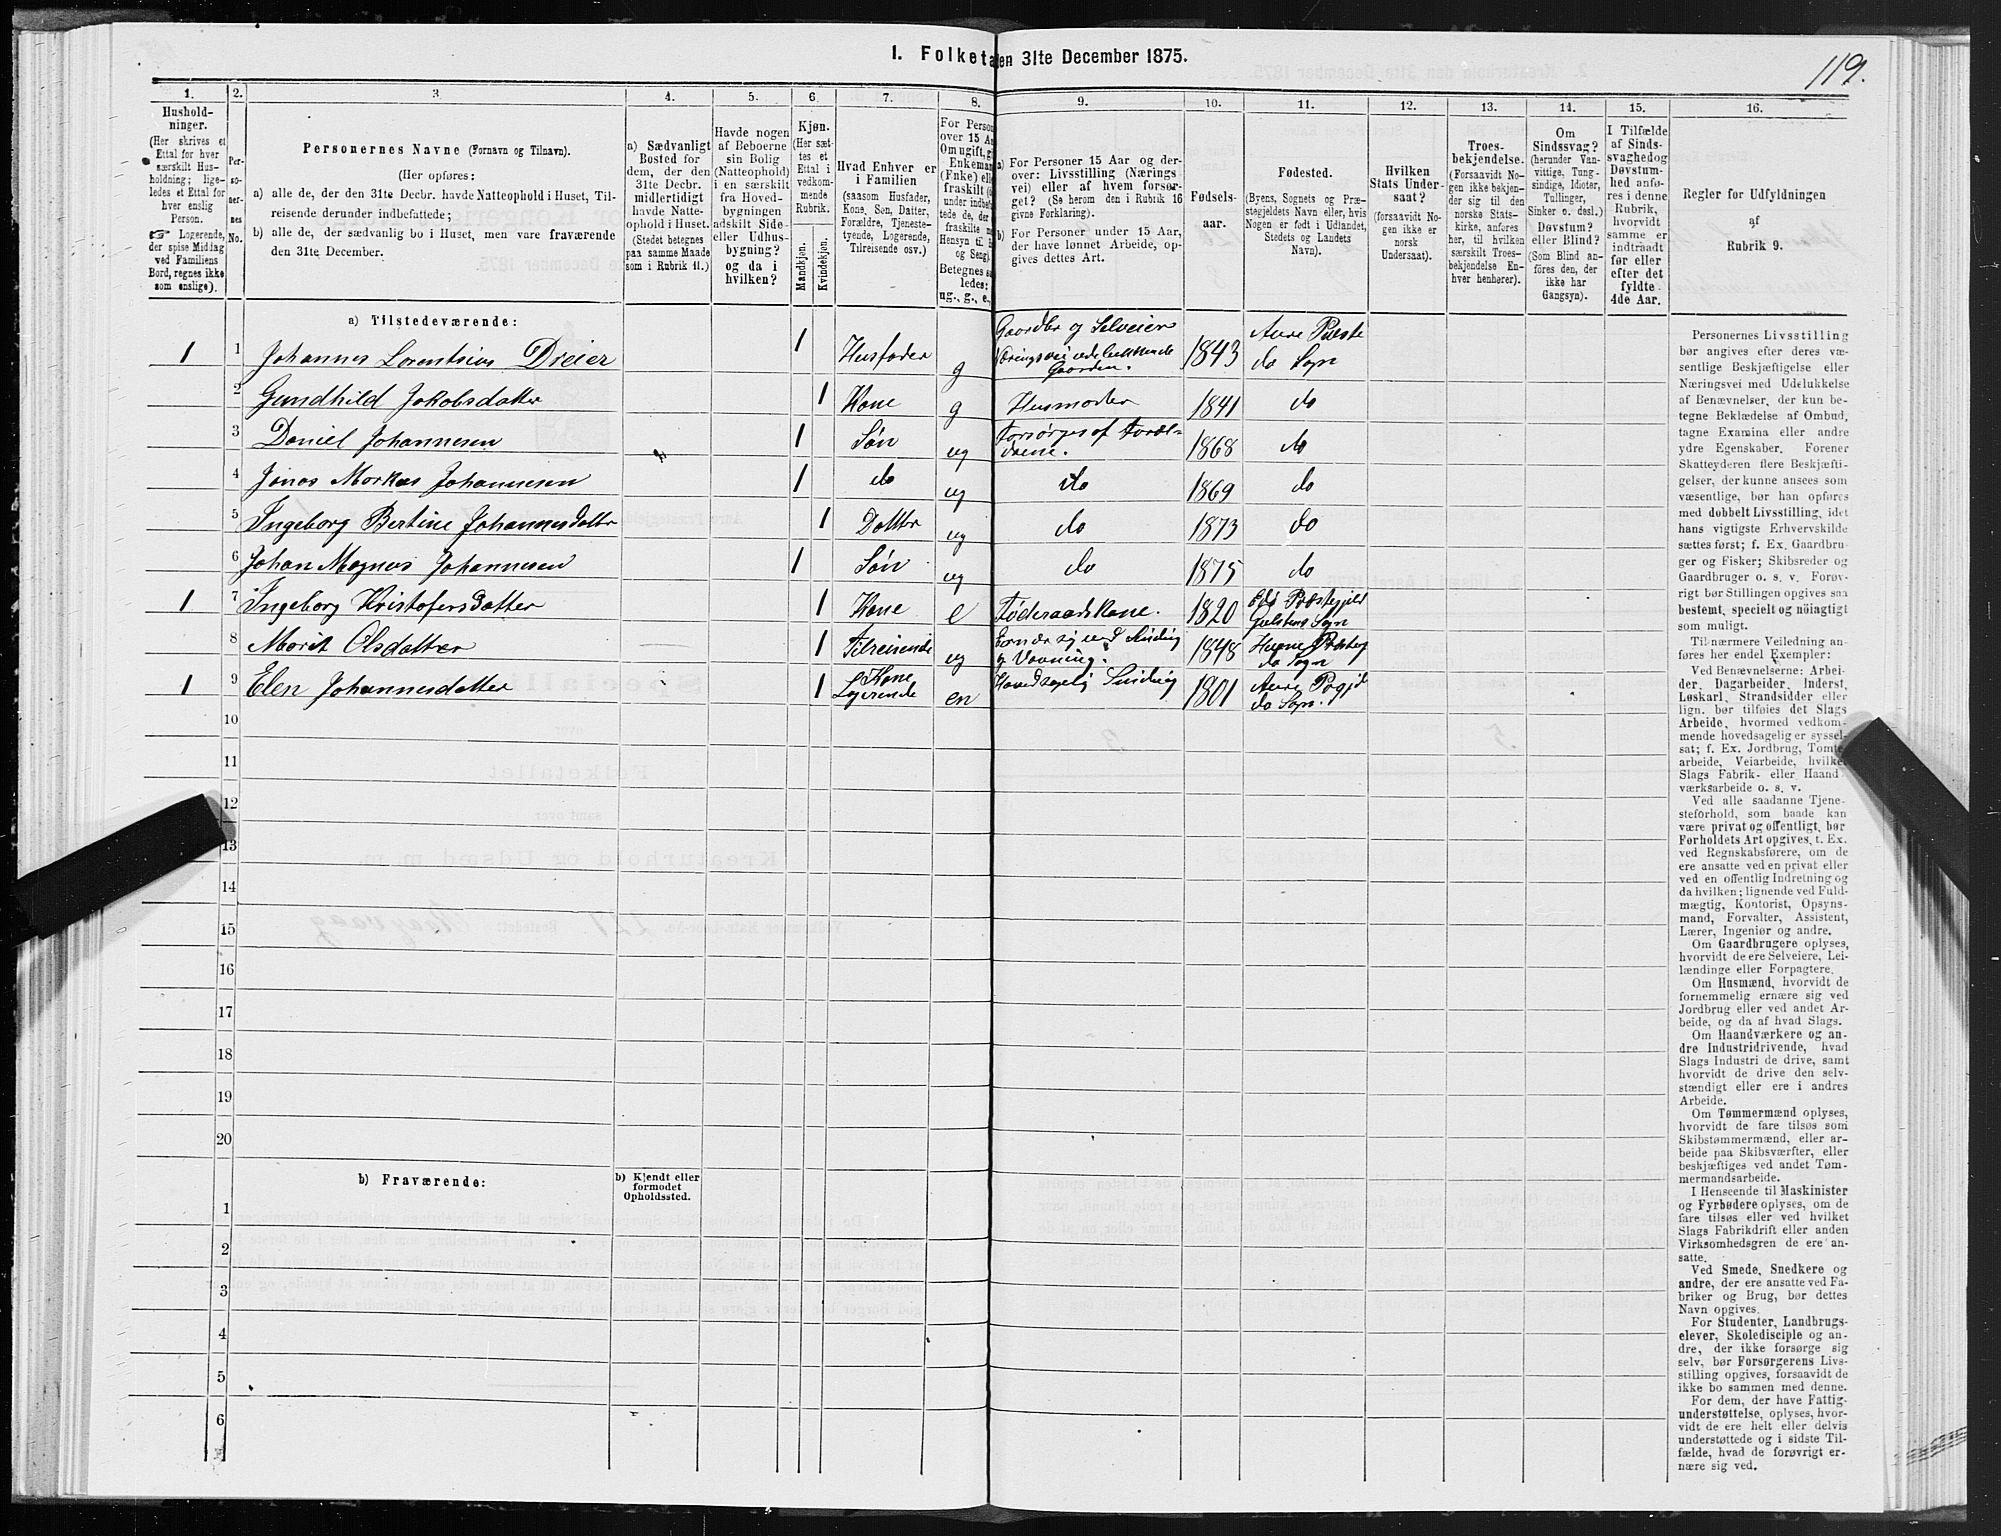 I. Folketa en 31te December 1875.
119.
1. 2. 3 4. 5. 6 7. 8. 9. 10. 11. 12. 13. 14. 15. 16.
Hushold-
ninger.
(Her skrives et
Ettal for hver
særskilt Hus-
holdning; lige-
ledes et Ettal for
hver enslig
Person.
☞ Logerende,
der spise Middag
ved Familiens
Bord, regnes ikke
som enslige).
Per-
so-
ner-
nes
No.
Personernes Navne (Fornavn og Tilnavn).
(Her opføres:
a) alle de, der den 31te Decbr. havde Natteophold i Huset, Til-
reisende derunder indbefattede;
b) alle de, der sædvanlig bo i Huset, men vare fraværende
den 31te December.
a) Sædvanligt
Bosted for
dem, der den
31te Decbr.
midlertidigt
havde Natte-
ophold i Huset.
(Stedet betegnes
paa samme Maade
som i Rubrik 11.)
Havde nogen
af Beboerne
sin Bolig
(Natteophold)
i en særskilt
fra Hoved-
bygningen
adskilt Side-
eller Udhus-
bygning?
og da i
hvilken?
Kjøn.
(Her sæt-
tes et
Ettal i
vedkom-
mende
Rubrik.
Mandkjøn.
Kvindekjøn.
Hvad Enhver er
i Familien
(saasom Husfader,
Kone, Søn, Datter,
Forældre, Tjeneste-
tyende, Logerende,
Tilreisende osv.)
For Person
over 15 Aa
Om ugift, gi
Enkeman
(Enke) elle
fraskilt (
under indbe
tede de, der
fraskilte m
Hensyn til B
og Seng).
Betegnes s
ledes:
ug., g., e.,
a) For Personer 15 Aar og der-
over: Livsstilling (Nærings
vei) eller af hvem forsør-
get? (Se herom den i Rubrik 16
givne Forklaring).
b) For Personer under 15 Aar,
der have lønnet Arbeide, op-
gives dettes Art.
Fødsels-
aar.
Fødested.
(Byens, Sognets og Præ-
stegjeldets Navn eller, hvis
Nogen er født i Udlandet,
Stedets og Landets
Navn).
Hvilken
Stats Under-
saat?
(forsaavidt No-
gen ikke er
norsk
Undersaat).
Troes-
bekjendelse.
(Forsaavidt No-
gen ikke bekjen-
der sig til den
norske Stats-
kirke, anføres
her, til hvilken
særskilt Troes-
bekjendelse En-
hver henhører).
Om
Sindssvag?
(herunder Van-
vittige, Tung-
sindige, Idioter,
Tullinger,
Sinker o. desl.)
Døvstum?
eller Blind?
(Som Blind an-
føres den, der
ikke har
Gangsyn).
I Tilfælde
af Sinds-
svaghed og
Døvstum-
hed anfø-
res i denne
Rubrik,
hvorvidt
samme er
indtraadt
før eller
efter det
fyldte
4de Aar.
Regler for Udfyldningen
af
Rubrik 9.
a) Tilstedeværende:
1 1 Johannes Lorentsius Dreier 1 Husfader g Gaardbr og Selveier Næringsvei udelukkende Gaarden. 1843 Aure Præste do Sogn
2 Gundhild Jakobsdatter 1 Kone g Husmoder 1841 do
3 Daniel Johannesen 1 Søn ug Forsørges af Foræl- drene. 1868 do
4 Jonas Markus Johannesen 1 do ug do 1869 do
5 Ingeborg Bertine Johannesdatter 1 Datter ug do 1873 do
6 Johan Magnus Johannesen 1 Søn ug do 1875 do
1 7 Ingeborg Kristofersdatter 1 Kone e Føderaadskone. 1820 Edø Præstegjeld Sogn
8 Marit Olsdatter 1 Tilreisende ug Ernær sig ved Sinding og Vævning. 1848 Hevne Præsteg do Sogn
1 9 Elen Johannesdatter 1 Kone Logerende en Hovedsagelig Sinding 1801 Aure Pregjd do Sogn.
10
11
12
13
14
15
16
17
18
19
20
b) Fraværende:
b) Kjendt eller
formodet
Opholdssted.
1
2
3
4
5
6
Personernes Livsstilling
bør angives efter deres væ-
sentlige Beskjæftigelse eller
Næringsvei med Udelukkelse
af Benævnelser, der kun be-
tegne Beklædelse af Ombud,
tagne Examina eller andre
ydre Egenskaber. Forener
Skatteyderen flere Beskjæfti-
gelser, der kunne ansees som
væsentlige, bør han opføres
med dobbelt Livsstilling, idet
hans vigtigste Erhvervskilde
sættes først; f. Ex. Gaardbru-
ger og Fisker; Skibsreder og
Gaardbruger o. s. v. Forøv-
rigt bør Stillingen opgives saa
bestemt, specielt og nöiagtigt
som muligt.
Til nærmere Veiledning an-
føres her endel Exempler:
Ved Benævnelserne: Arbei-
der, Dagarbeider, Inderst,
Løskarl, Strandsidder eller
lign. bør tilføies det Slags
Arbeide, hvormed vedkom-
mende hovedsagelig er syssel-
sat; f. Ex. Jordbrug, Tomte-
arbeide, Veiarbeide, hvilket
Slags Fabrik- eller Haand-
værksarbeide o. s. v.
Ved alle saadanne Tjene-
steforhold, som baade kan
være privat og offentligt, bør
Forholdets Art opgives, t. Ex.
ved Regnskabsførere, om de
ere ansatte ved en privat eller
ved en offentlig Indretning og
da hvilken; lignende ved Fuld-
mægtig, Kontorist, Opsyns-
mand, Forvalter, Assistent,
Lærer, Ingeniør og andre.
Om Gaardbrugere oplyses,
hvorvidt de ere Selveiere, Lei-
lændinge eller Forpagtere.
Om Husmænd, hvorvidt de
fornemmelig ernære sig ved
Jordbrug eller ved andet Ar-
beide, og da af hvad Slags.
Om Haandværkere og an-
dre Industridrivende, hvad
Slags Industri de drive, samt
hvorvidt de drive den selv-
stændigt eller ere i andres
Arbeide.
Om Tømmermænd oplyses,
hvorvidt de fare tilsøs som
Skibstømmermænd, eller ar-
beide paa Skibsværfter, eller
beskjæftiges ved andet Tøm-
mermandsarbeide.
I Henseende til Maskinister
og Fyrbødere oplyses, om de
fare tilsøs eller ved hvilket
Slags Fabrikdrift eller anden
Virksomhedsgren de ere an-
satte.
Ved Smede, Snedkere og
andre, der ere ansatte ved Fa-
briker og Brug, bør dettes
Navn opgives.
For Studenter, Landbrugs-
elever, Skoledisciple og an-
dre, der ikke forsørge sig
selv, bør Forsørgerens Livs-
stilling opgives, forsaavidt de
ikke bo sammen med denne.
For dem, der have Fattig-
understøttelse, oplyses, hvor-
vidt de ere helt eller delvis
understøttede og i sidste Til-
fælde, hvad de forøvrigt er-
nære sig ved.